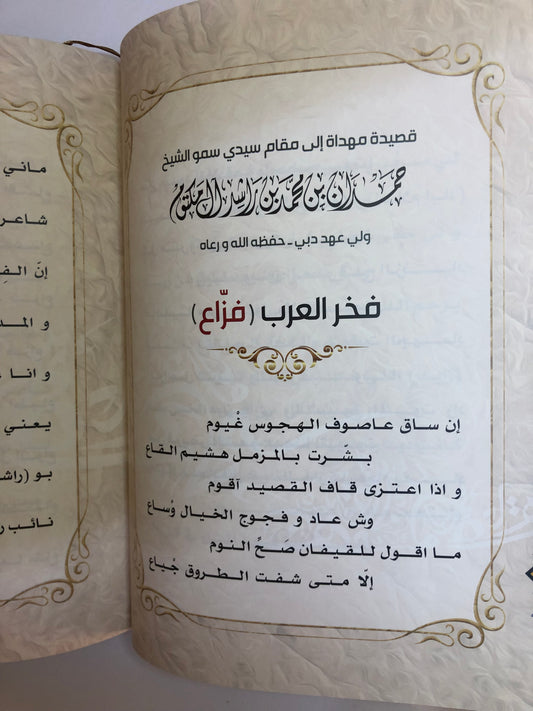 قصيدة مهداة إلى مقام سيدي سمو الشيخ
حمدان بن محمد بن راشد آل مكتوم
ولي عهد دبي - حفظه الله و رعاه
فخر العرب (فزّاع)
إن ساق عاصوف الهجوس غْيوم
بشّرت بالمزمل هشيم القاع
و اذا اعتزى قاف القصيد آقوم
وش عاد و فجوج الخيال وْساع
ما اقول للقيفان صَحِّ النوم
إلّا متى شفت الطروق جْياع
ماني
شاعر
إنّ
و انا
يعني
بو (راش
نائب